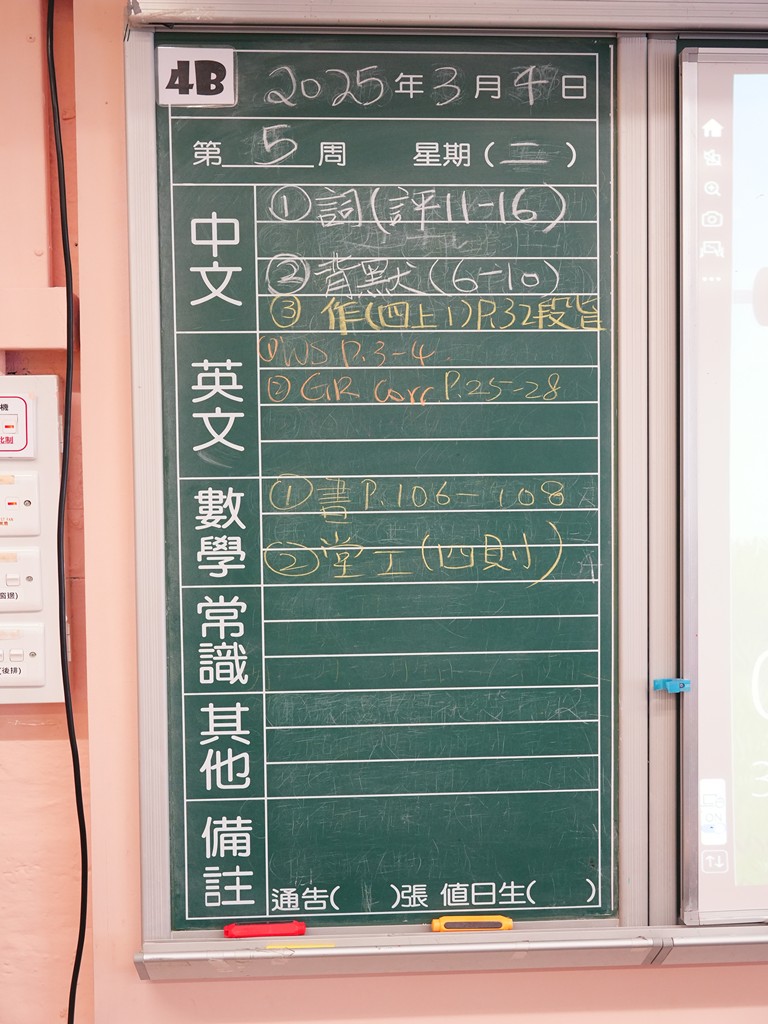 4B 2025年3月4日
第5周 星期(二)
中文
①詞(評11-16)
②背默(6-10)
③ 作(四上1)P.32段旨
英文
①WS P.3-4
②GR Corr P.25-28
數學
①書P.106-108
②堂工(四則)
常識
其他
備註
通告( )張 值日生( )
機
(後排)
ON